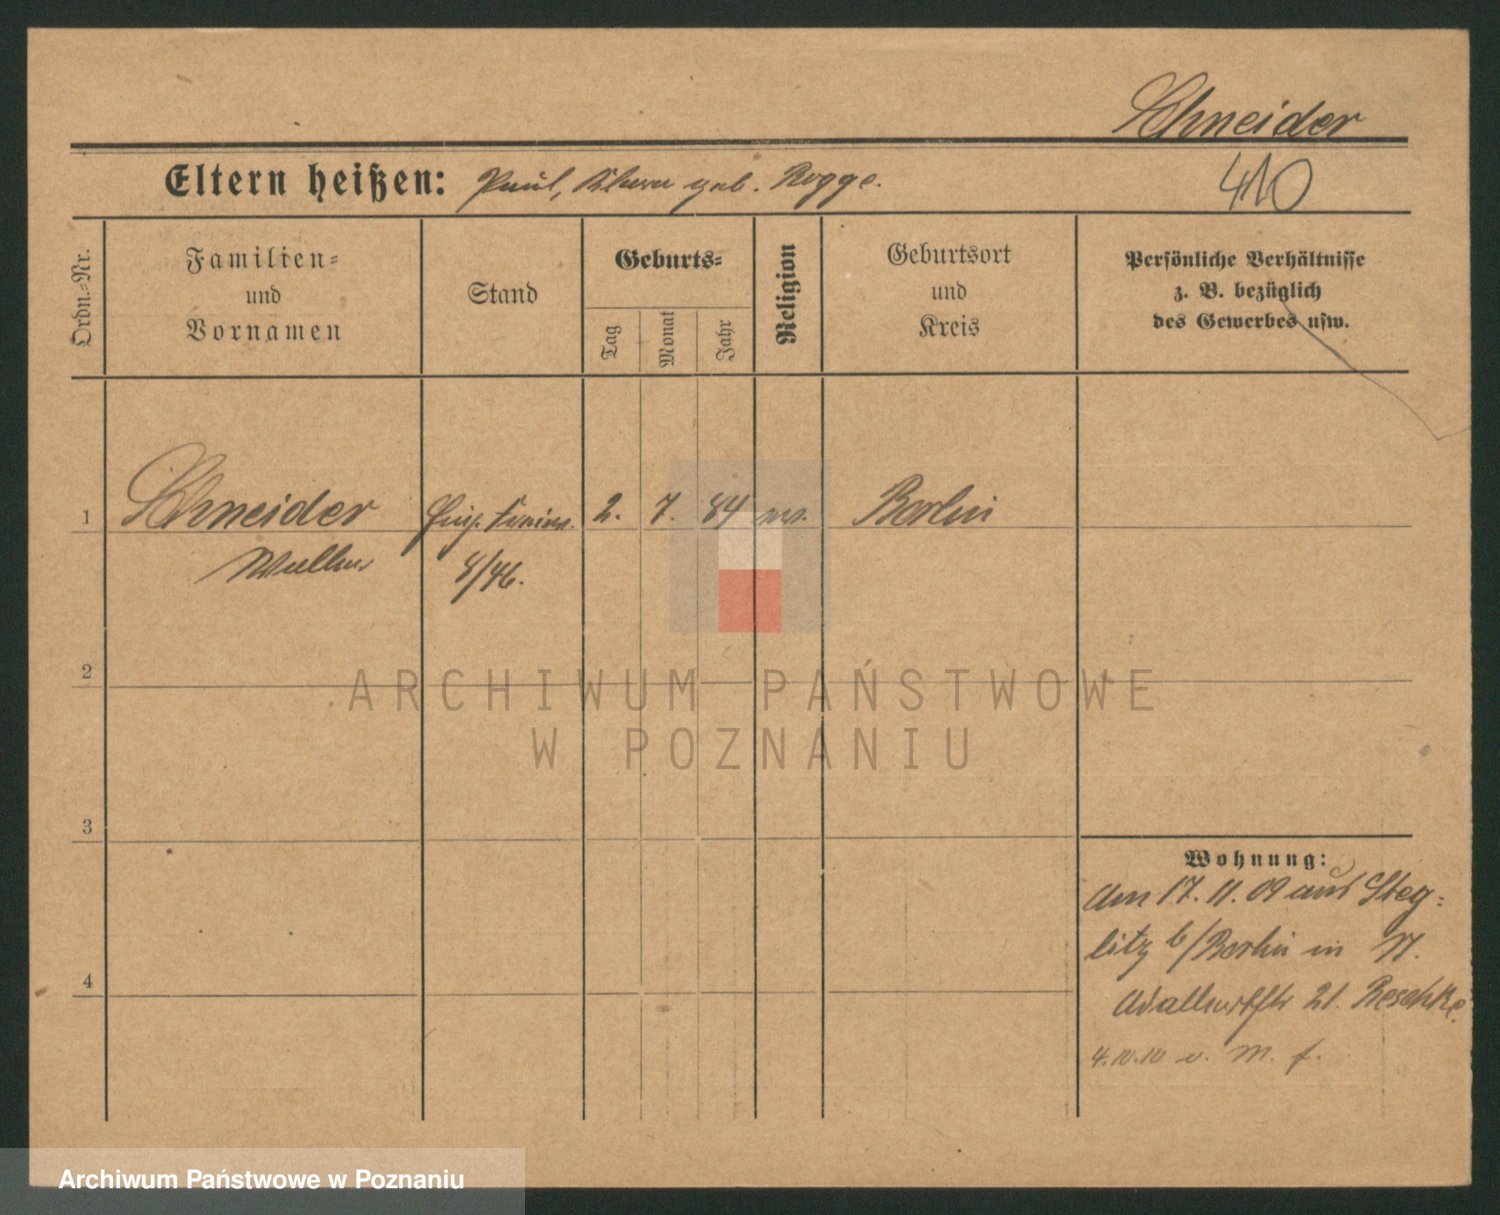 Schneider
Eltern heißen: Paul, Klara geb. Rogge.
410
Ordn.-Nr.
Familien-
und
Vornamen
Stand
Geburts-
Tag
Monat
Jahr
Religion
Geburtsort
und
Kreis
Persönliche Verhältnisse
z. B. bezüglich
des Gewerbes usw.
1 Schneider 2. 7. 84 Berlin
8/46.
2
3
4
Wohnung:
Am 17. 11. 09 aus Steg-
litz b/Berlin in
21. Reschke
4.10.10 v. M. f.
ARCHIWUM PAŃSTWOWE
W POZNANIU
Archiwum Państwowe w Poznaniu